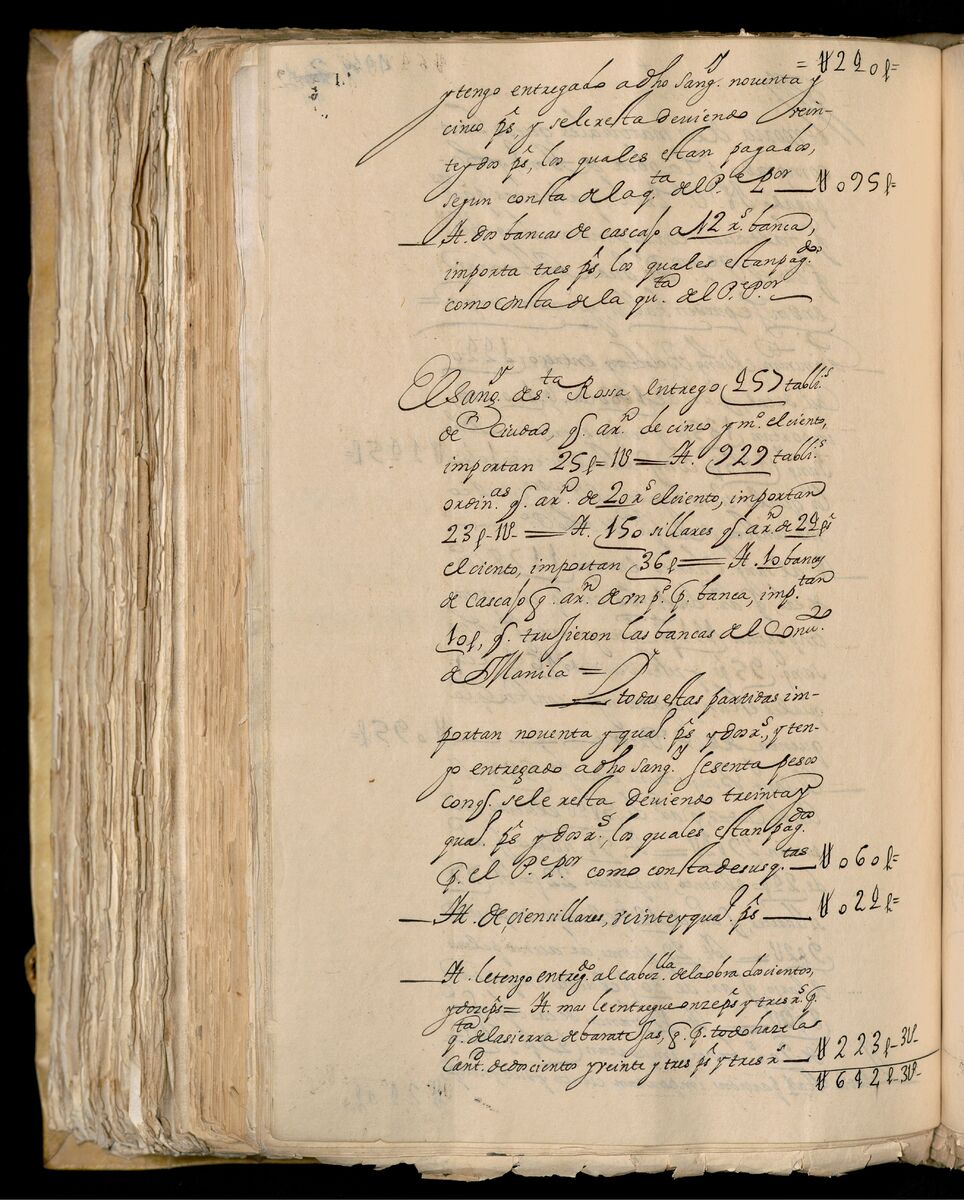 = U240p=
y tengo entregado a dho Sang.y noventa y
cinco ps, y sele resta deviendo vein-
te y dos ps, los quales estan pagados,
segun consta de la q.ta del P.e P.or — U095p=
— It. dos bancas de cascaso a 12 rs. banca,
importa tres ps, los quales estan pag.dos
como consta de la qu.ta del P.e P.or —
El Sang.y de S.ta Rossa entrego 457 tabli.s
de Ciudad, q. a rn. de cinco y m.o el ciento,
importan 25p=1U= It. 924 tabli.s
ordin.as q. a rn. de 20 rs el ciento, importan
23p-1U- = It. 150 sillares q. a rn. de 24 ps
el ciento, importan 36p = It. 10 bancas
de cascaso q. a rn. de un p.o p. banca, imp.tan
10p, q. truxieron las bancas del Conv.to
de Manila =
todas estas partidas im-
portan noventa y quat. ps y dos rs, y ten-
go entregado a dho Sang.y sesenta pesos
conq. sele resta deviendo treinta y
quat. ps y dos rs, los quales estan pag.dos
p. el P.e P.or como consta de sus q.tas — U060p=
— It. de cien sillares, veinte y quat. ps — U024p=
— It. le tengo entreg.do al cabez.lla de la obra docientos,
y doze ps = It. mas le entregue onze ps y tres rs. p.
q.ta de la sierra de baratesas, q. p. todo haze las
Cant. de docientos y veinte y tres ps y tres rs — U223p-3U-
U642p-3U-